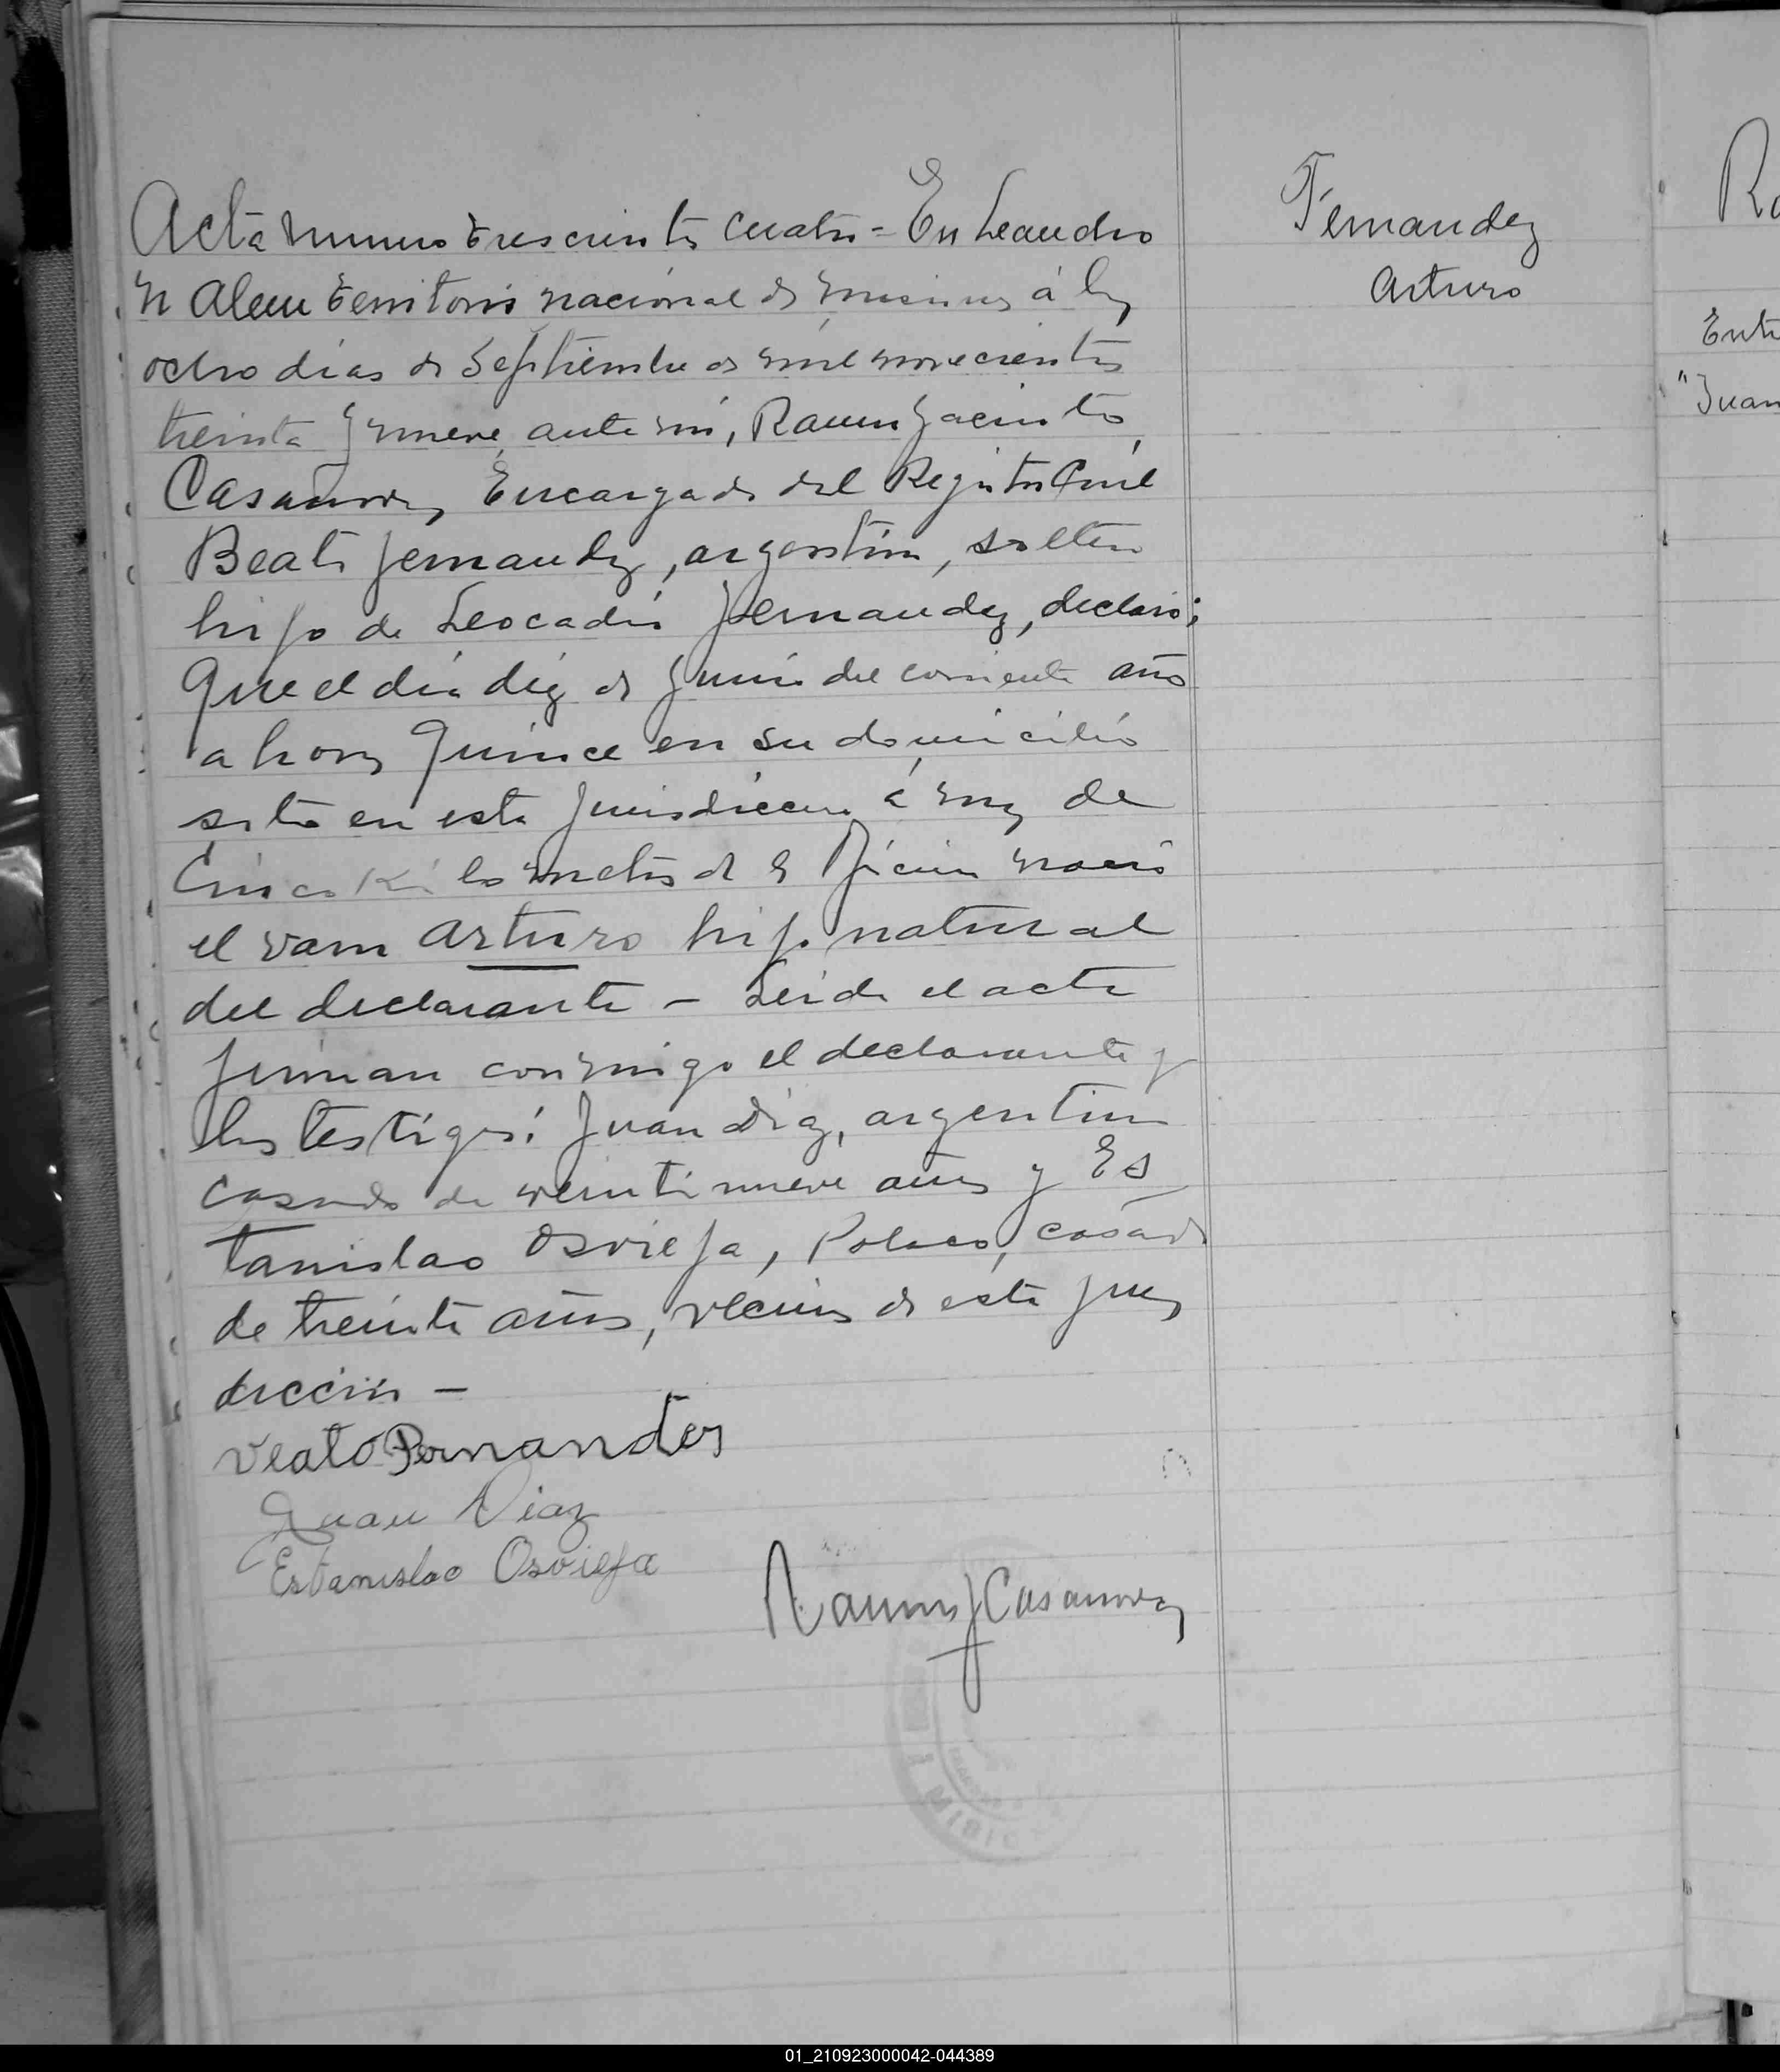 Fernandez
Arturo
Acta numero trescientos cuatro = En Leandro
N Alem territorio nacional de Misiones á los
ocho dias de Septiembre de mil novecientos
treinta y nueve, ante mí, Ramon Jacinto
Casanova, Encargado del Registro Civil
Beato Fernandez, argentino, soltero
hijo de Leocadio Fernandez, declaró;
Que el dia diez de Junio del corriente año
a horas quince en su domicilio
sito en esta jurisdiccion á mas de
Cinco Kilometros de la Oficina nació
el varon Arturo hijo natural
del declarante - Leida el acta
firman conmigo el declarante y
los testigos: Juan Diaz, argentino
casado de veintinueve años y Es
tanislao Osvieja, Polaco, casado
de treinta años, vecinos de esta juris
diccion -
Veato Fernandes
Juan Diaz
Estanislao Osvieja
Ramon J Casanova
Ent
"Juan
01_210923000042-044389